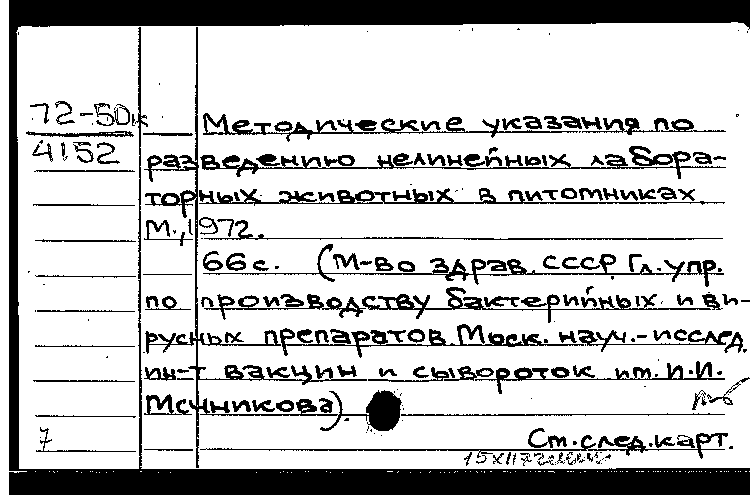 72-50к
4152
Методические указания по
разведению нелинейных лабора-
торных животных в питомниках.
М., 1972.
66 с. (М-во здрав. СССР. Гл. упр.
по производству бактерийных и ви-
русных препаратов. Моск. науч.-исслед.
ин-т вакцин и сывороток им. И.И.
Мечникова).
7
См. след. карт.